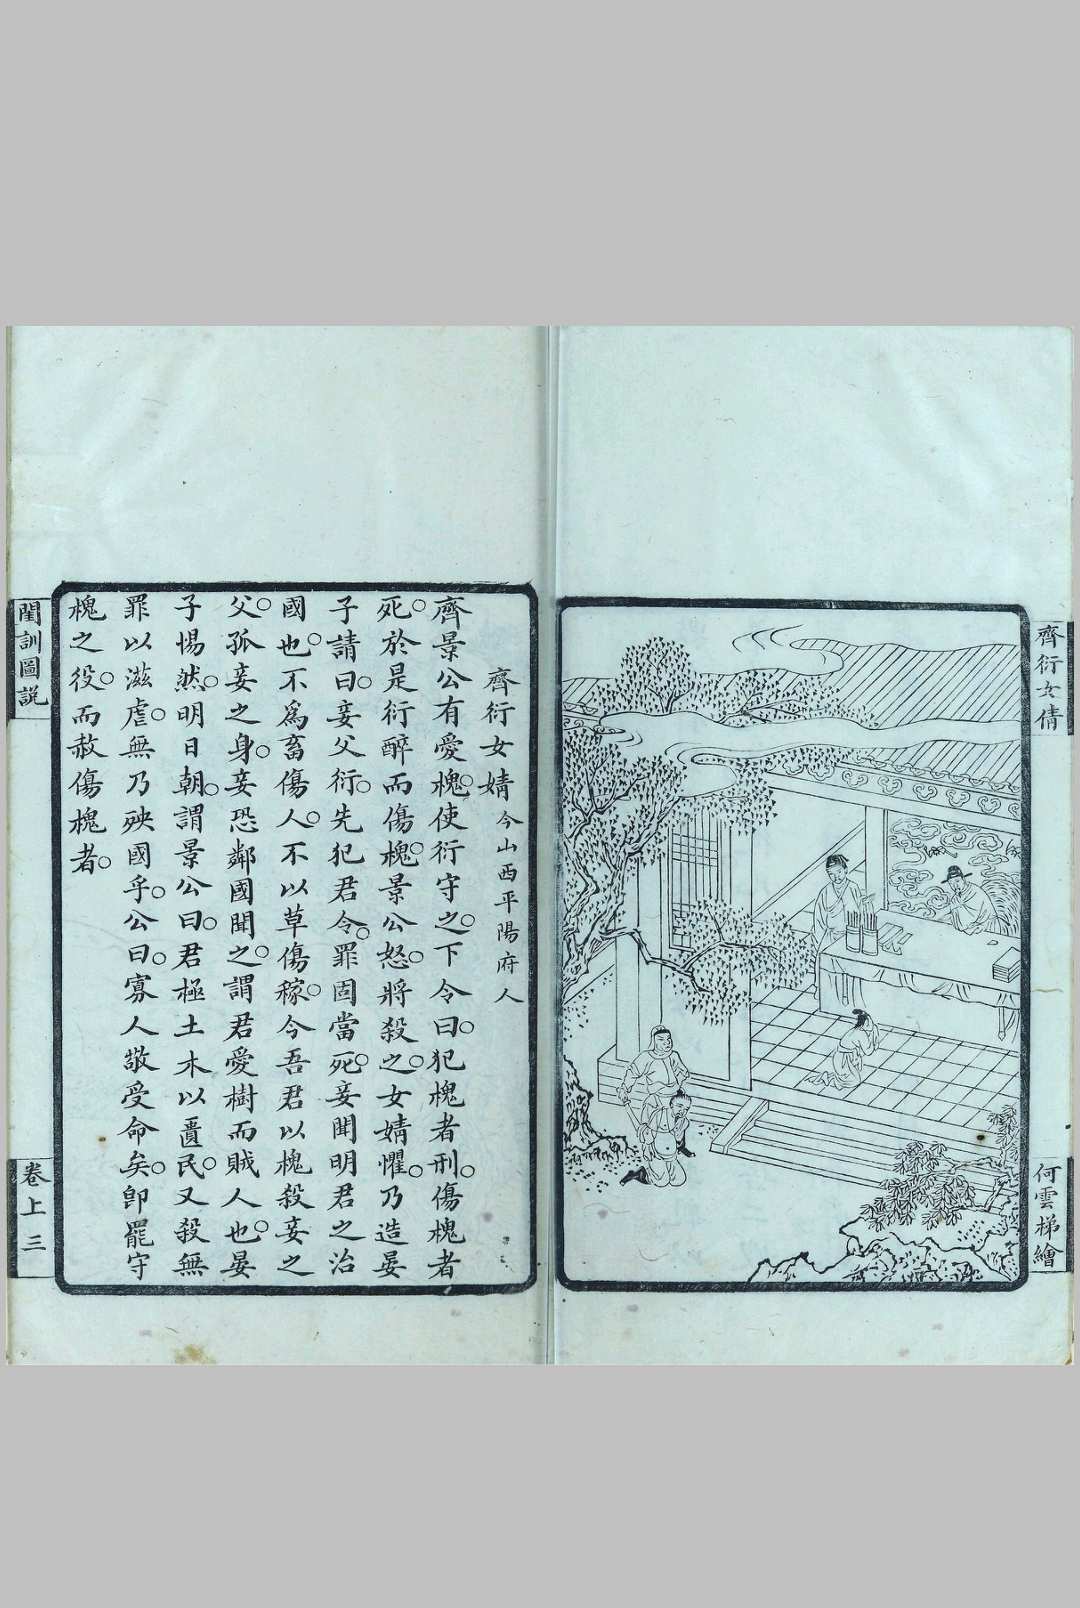 齊衍女倩
何雲梯繪
齊衍女婧今山西平陽府人
齊景公有愛槐使衍守之下令曰犯槐者刑傷槐者
死於是衍醉而傷槐景公怒將殺之女婧懼乃造晏
子請曰妾父衍先犯君令罪固當死妾聞明君之治
國也不爲畜傷人不以草傷稼今吾君以槐殺妾之
父孤妾之身妾恐鄰國聞之謂君愛樹而賊人也晏
子惕然明日朝謂景公曰君極土木以匱民又殺無
罪以滋虐無乃殃國乎公曰寡人敬受命矣卽罷守
槐之役而赦傷槐者
閨訓圖説
卷上 三